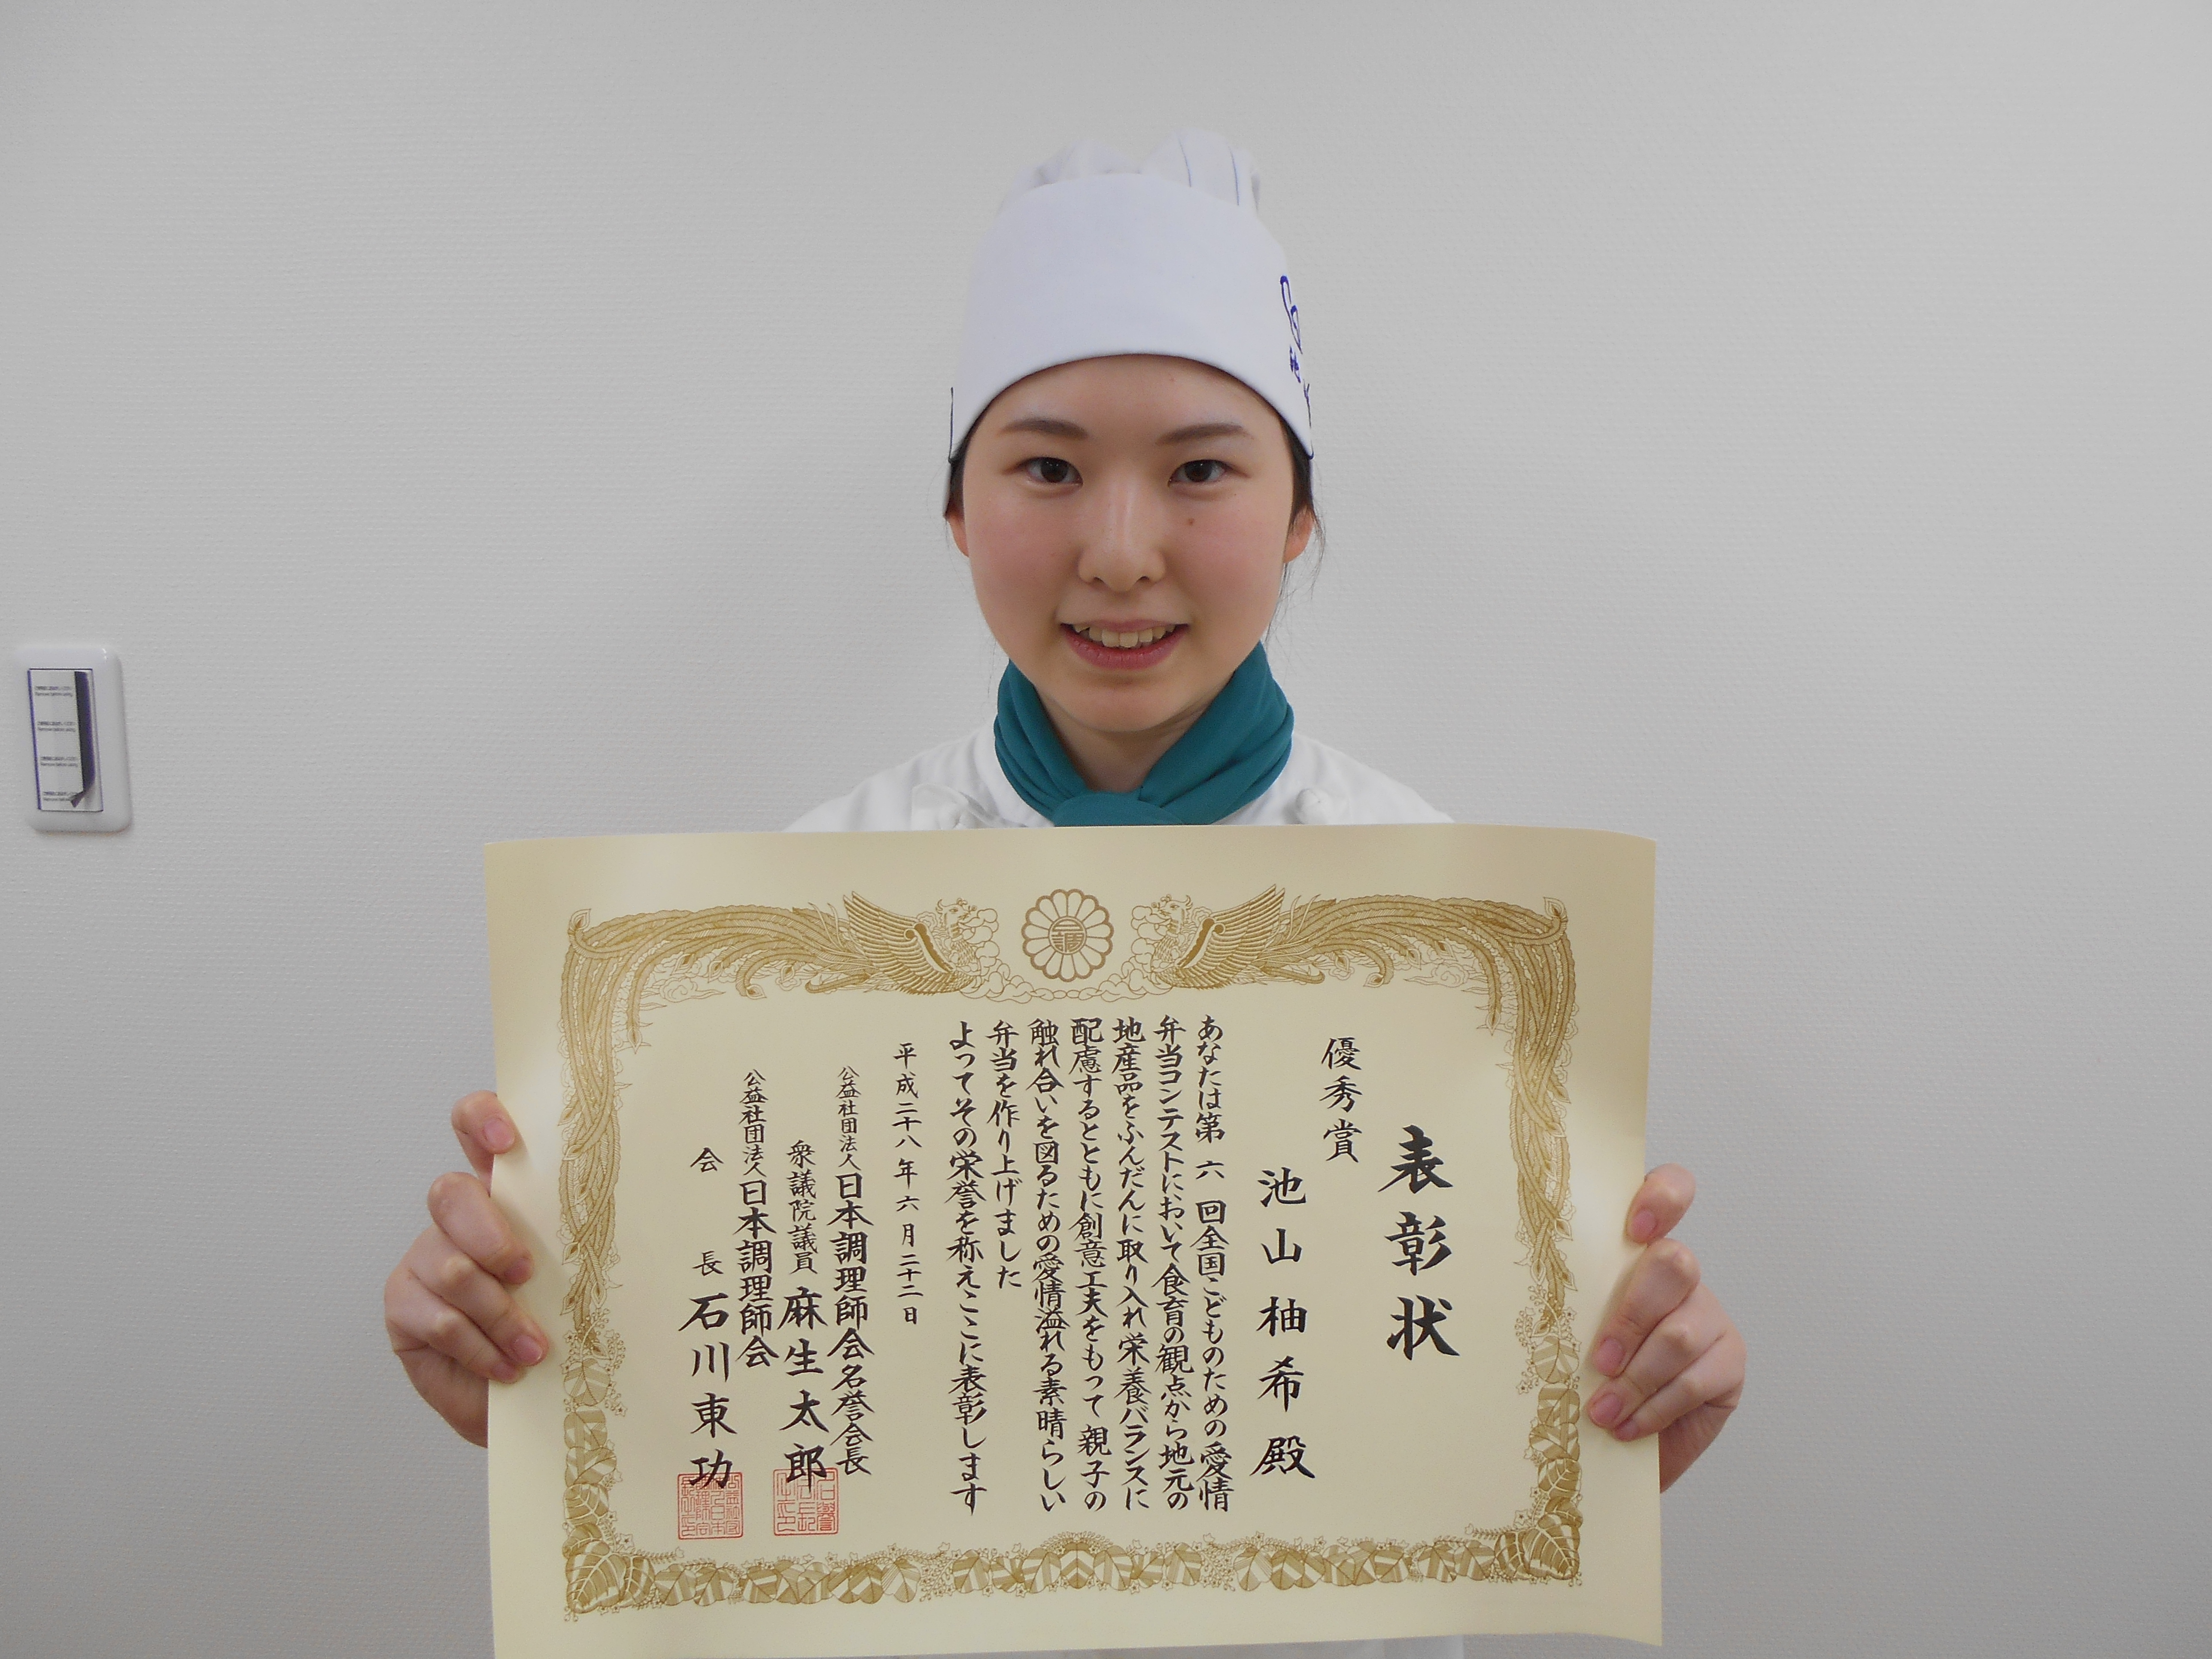 表彰状
優秀賞
池山柚希殿
あなたは第六回全国こどものための愛情
弁当コンテストにおいて食育の観点から地元の
地産品をふんだんに取り入れ栄養バランスに
配慮するとともに創意工夫をもって親子の
触れ合いを図るための愛情溢れる素晴らしい
弁当を作り上げました
よってその栄誉を称えここに表彰します
平成二十八年六月二十二日
公益社団法人日本調理師会名誉会長
衆議院議員麻生太郎
公益社団法人日本調理師会
会長石川東功
池山